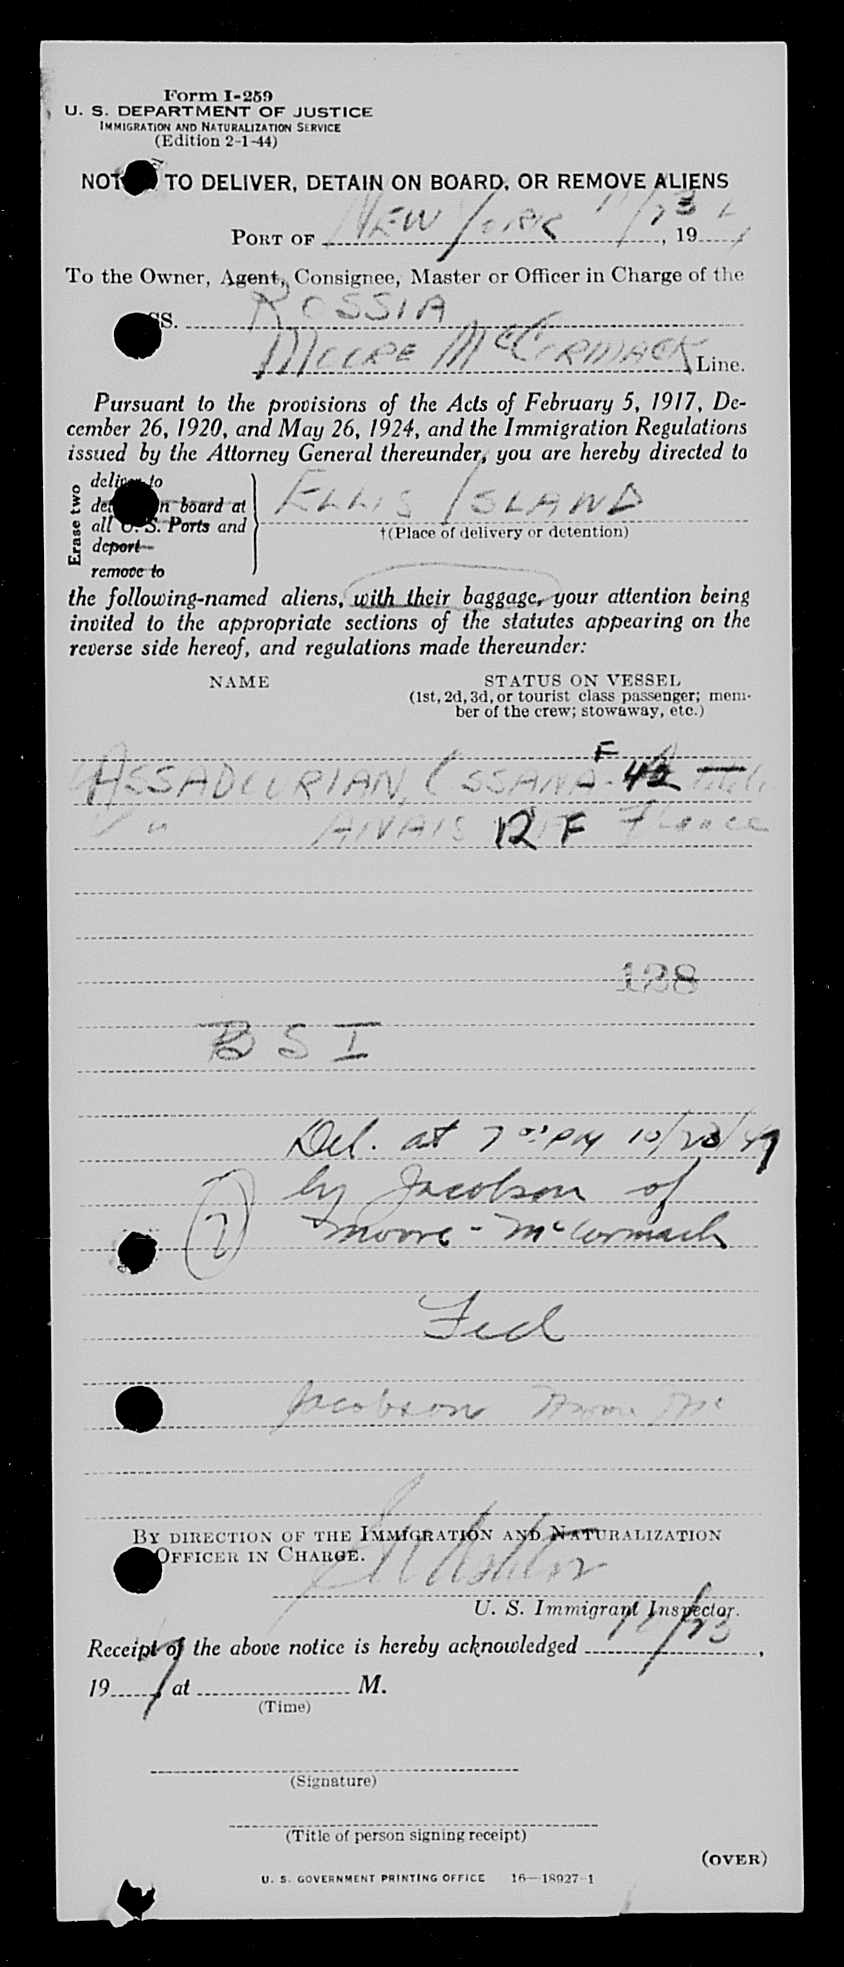 Form I-259
U. S. DEPARTMENT OF JUSTICE
IMMIGRATION AND NATURALIZATION SERVICE
(Edition 2-1-44)
TO DELIVER, DETAIN ON BOARD, OR REMOVE ALIENS
PORT OF NEW YORK 11/23, 194
To the Owner, Agent, Consignee, Master or Officer in Charge of the
SS. ROSSIA
MOORE McCORMACK Line.
Pursuant to the provisions of the Acts of February 5, 1917, De-
cember 26, 1920, and May 26, 1924, and the Immigration Regulations
issued by the Attorney General thereunder, you are hereby directed to
Erase two
deliver to
detain on board at
all U. S. Ports and
deport
remove to
ELLIS ISLAND
†(Place of delivery or detention)
the following-named aliens, with their baggage, your attention being
invited to the appropriate sections of the statutes appearing on the
reverse side hereof, and regulations made thereunder:
NAME STATUS ON VESSEL
(1st, 2d, 3d, or tourist class passenger; mem-
ber of the crew; stowaway, etc.)
ASSADOURIAN, OSSANA F 42
" ANAIS 12 F
128
B S I
Del. at 7 00 PM 10/23/47
by Jacobson of
Moore-McCormack
2
Jacobson Moore Mc
BY DIRECTION OF THE IMMIGRATION AND NATURALIZATION
OFFICER IN CHARGE.
U. S. Immigrant Inspector.
Receipt of the above notice is hereby acknowledged 11/23,
197 at M.
(Time)
(Signature)
(Title of person signing receipt)
(OVER)
U. S. GOVERNMENT PRINTING OFFICE 16—18927-1